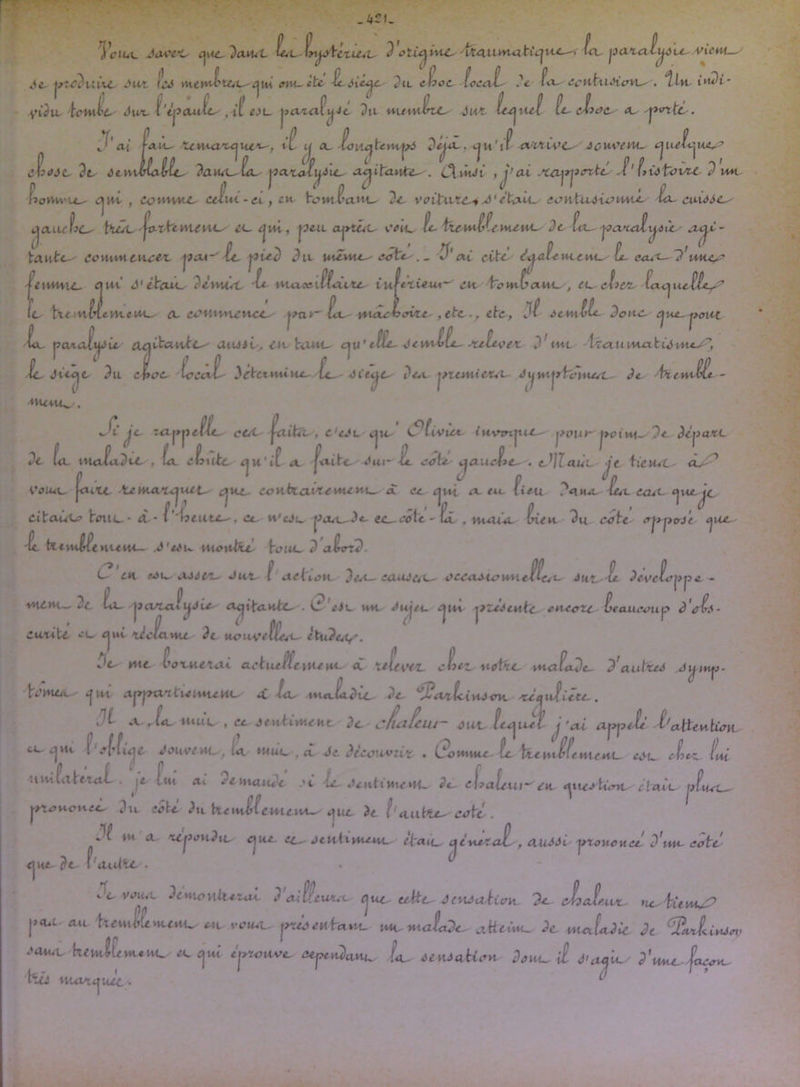 _421_
Vous savez que dans les hystéries d'origine traumatique, la paralysie vient
se produire sur les membres qui ont été le siège du choc local de la contusion. Un indi-
vidu tombe sur l'épaule, il est paralysé du membre sur lequel le choc a porté.
J'ai fait remarquer, il y a longtemps déjà, qu'il arrive souvent quelque
chose de semblable dans la paralysie agitante. Ainsi, j'ai rapporté l'histoire d'un
homme qui, comme celui-ci, en tombant de voiture, s'était contusionné la cuisse
gauche très fortement et qui, peu après, voit le tremblement de la paralysie agi-
tante commencer par le pied du même côté._ J'ai cité également le cas d'une
femme qui s'était démis le maxillaire inférieur en tombant, et chez laquelle
le tremblement a commencé par la mâchoire, etc., etc, Il semble donc que pour
la paralysie agitante aussi, en tant qu'elle semble relever d'un traumatisme,
le siège du choc local détermine le siège des premiers symptômes de tremble-
ment.
Si je rappelle ces faits, c'est qu'Olivier invoque pour point de départ
de la maladie, la chûte qu'il a faite sur le côté gauche. Mais je tiens à
vous faire remarquer que contrairement à ce qui a eu lieu dans les cas que je
citais tout-à-l'heure, ce n'est pas de ce côté-là, mais bien du côté opposé que
le tremblement s'est montré tout d'abord.
C'en est assez sur l'action des causes occasionnelles sur le développe-
ment de la paralysie agitante. C'est un sujet qui présente encore beaucoup d'obs-
curité et qui réclame de nouvelles études.
Je me bornerai actuellement à relever chez notre malade d'autres symp-
tômes qui appartiennent à la maladie de Parkinson régulière.
Il a, la nuit, ce sentiment de chaleur sur lequel j'ai appelé l'attention
et qui l'oblige souvent, la nuit, à se découvrir. Comme le tremblement est chez lui
unilatéral, je lui ai demandé si le sentiment de chaleur en question était plus
prononcé du côté du tremblement que de l'autre côté.
Il m'a répondu que ce sentiment était général, aussi prononcé d'un côté
que de l'autre.
Je vous démontrerai d'ailleurs que cette sensation de chaleur ne tient
pas au tremblement en vous présentant un malade atteint de maladie de Parkinson
sans tremblement et qui éprouve cependant la sensation dont il s'agit d'une façon
très marquée.